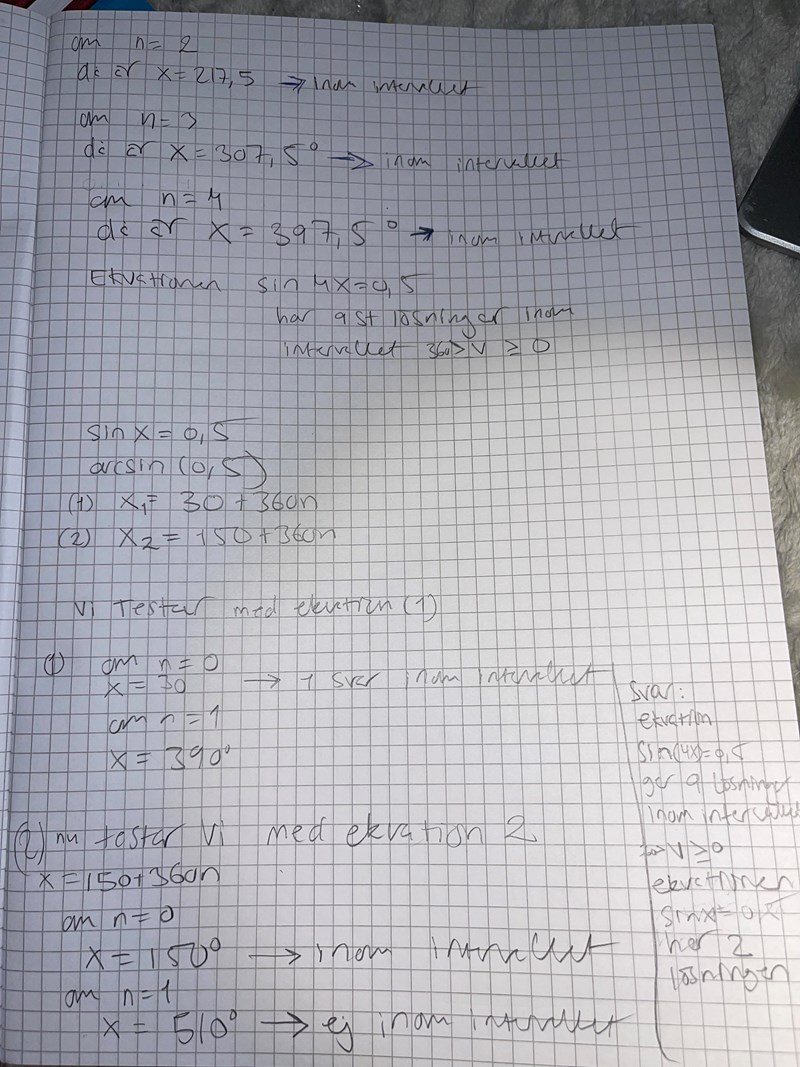 om n = 2
då är x = 217,5 → inom intervallet
om n = 3
då är x = 307,5° → inom intervallet
om n = 4
då är x = 397,5° → inom intervallet
Ekvationen sin 4x = 0,5
har 9 st lösningar inom
intervallet 360 > v ≥ 0
sin x = 0,5
arcsin (0,5)
(1) x₁ = 30 + 360n
(2) x₂ = 150 + 360n
Vi Testar med ekvation (1)
(1) om n = 0
x = 30 → 1 svar inom intervallet
om n = 1
x = 390°
(2) nu testar vi med ekvation 2
x = 150 + 360n
om n = 0
x = 150° → inom intervallet
om n = 1
x = 510° → ej inom intervallet
Svar:
ekvation
sin(4x) = 0,5
ger 9 lösningar
inom intervallet
V ≥ 0
ekvationen
sin x = 0,5
har 2
lösningar